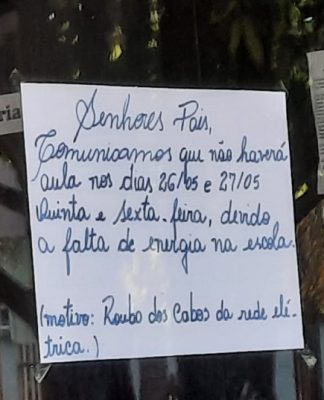 ria
Senhores Pais,
Comunicamos que não haverá
aula nos dias 26/05 e 27/05
Quinta e sexta-feira, devido
a falta de energia na escola.
(motivo: Roubo dos Cabos da rede elé-
trica.)